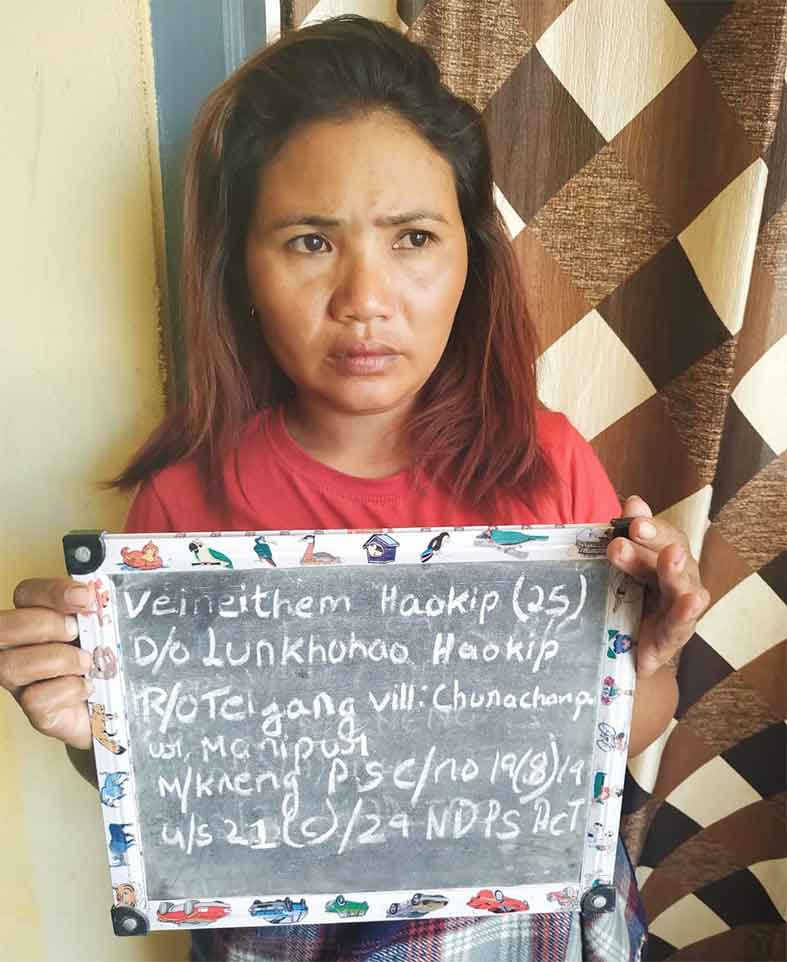 Veineithem Haokip (25)
D/o Lunkhohao Haokip
R/o Teigang vill: Churachanp
ur, Manipur
M/Kneng PS C/no 19(8)19
u/s 21(c)/29 NDPS Act